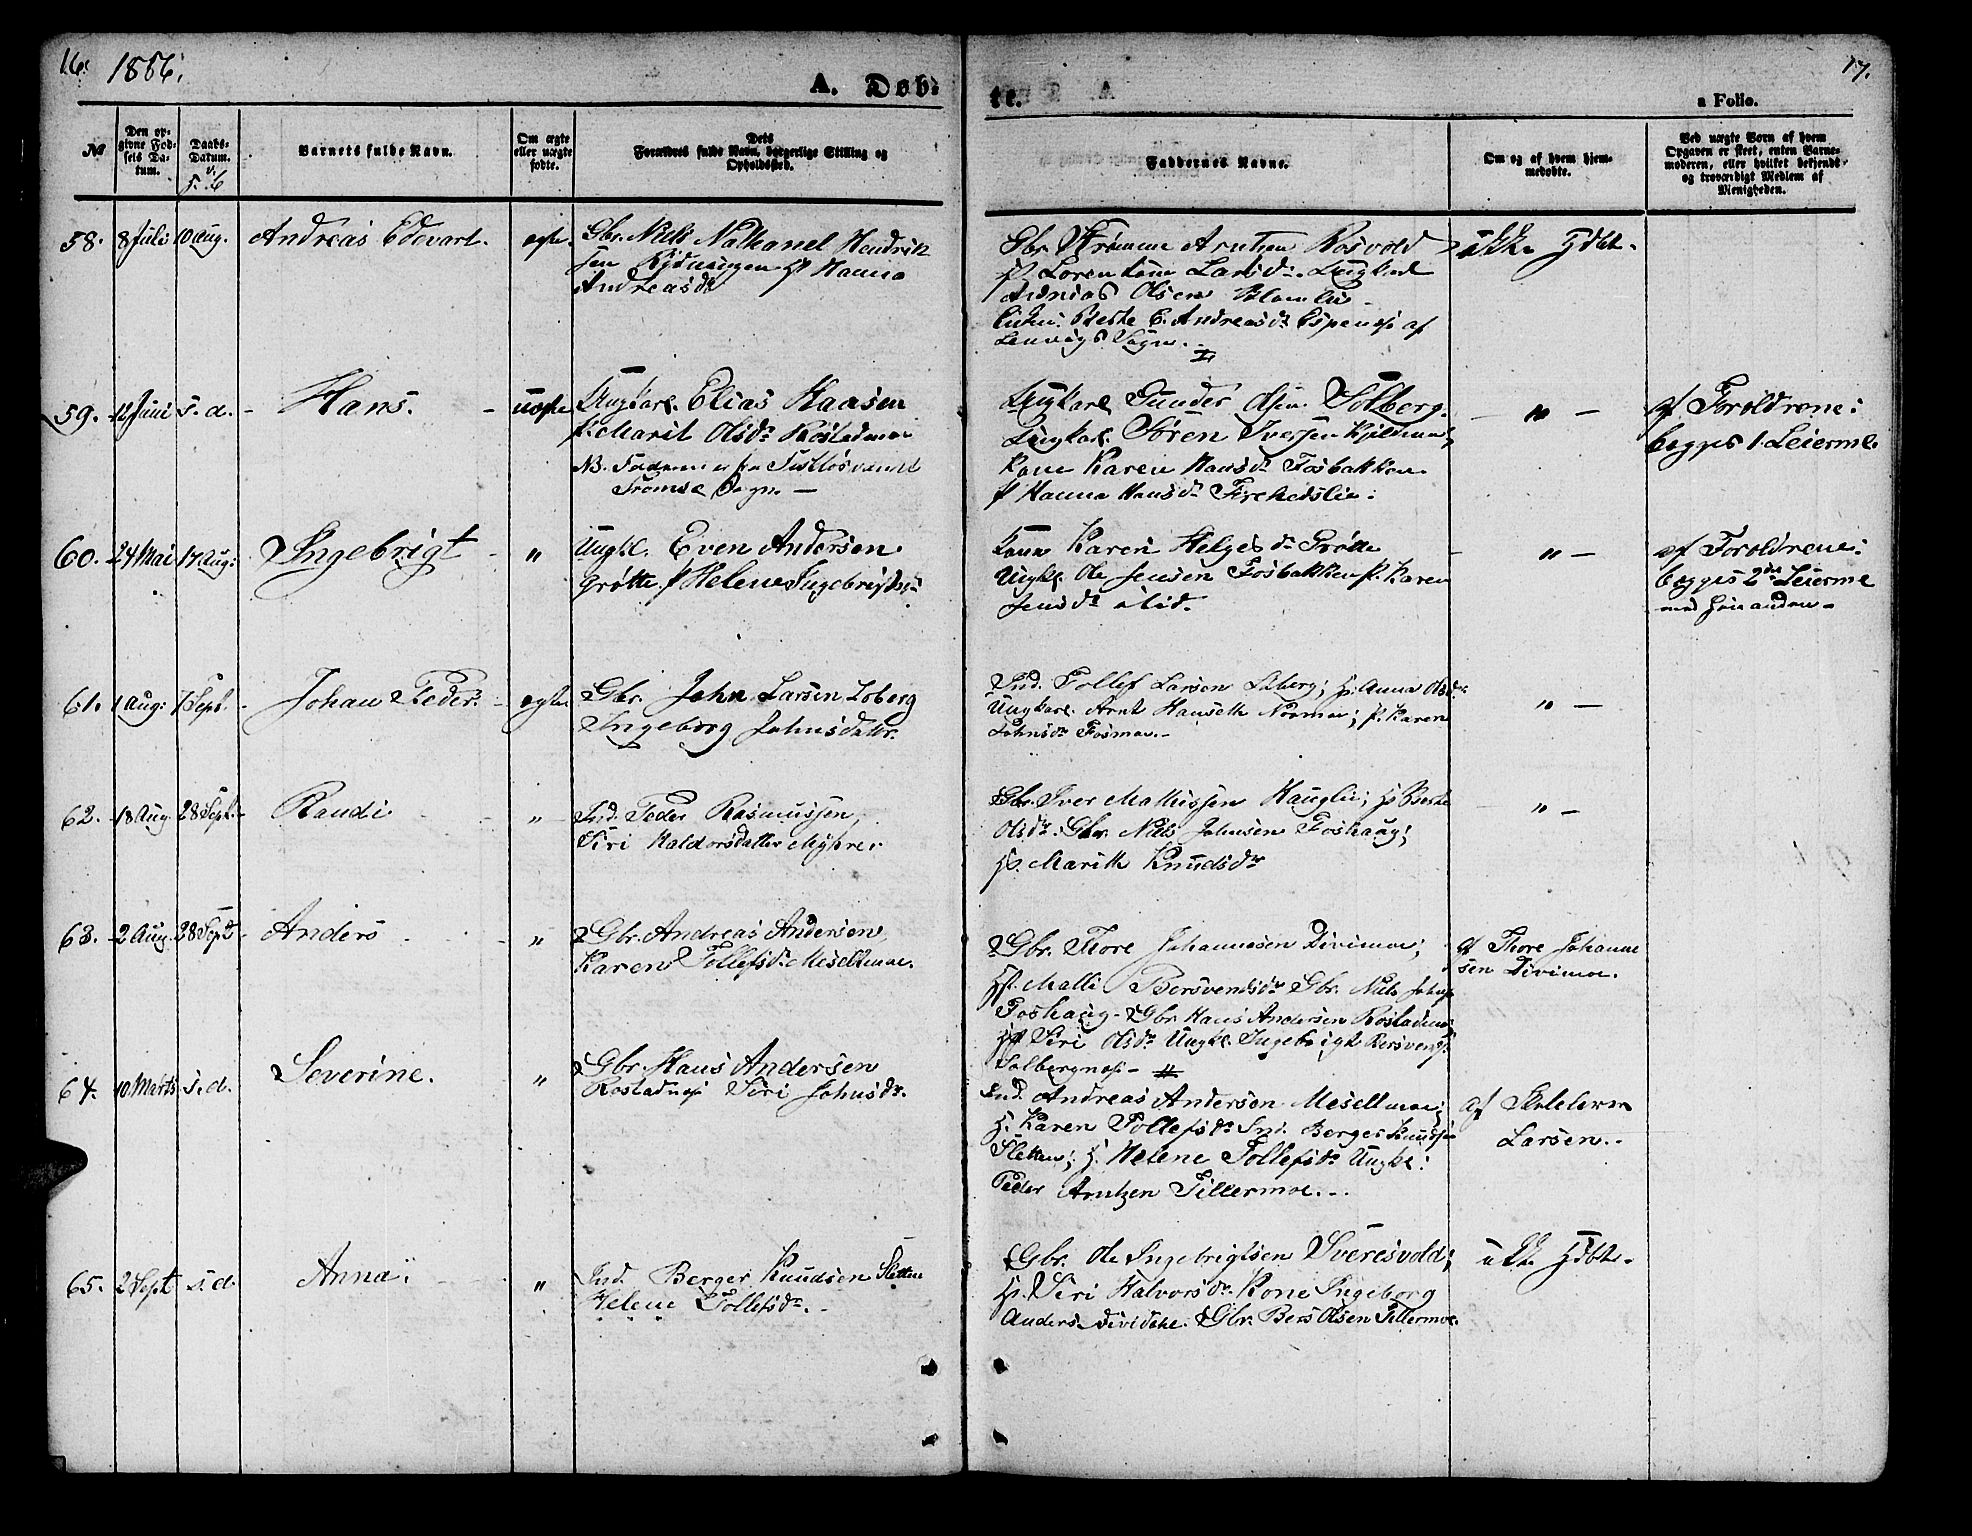 16. 1856.
A. Døb-
te.
17.
a Folio.
No
Den op-
givne Fød-
sels Da-
tum.
Daabs-
Datum.
Barnets fulde Navn.
Om ægte
eller uægte
fødte.
Dets
Forældres fulde Navn, borgerlige Stilling og
Opholdssted.
Faddernes Navne.
Om og af hvem hjem-
medøbte.
Ved uægte Børn af hvem
Opgaven er skeet, enten Barne-
moderen, eller hvilket bekjendt
og troværdigt Medlem af
Menigheden.
58. 8 Juli 10 Aug. Andreas Edevart. ægte. Gbr. Niels Nathanel Hendrik
sen Hanna
Andreasdr
Gbr. Arntsen Rosvold
Larsdr. Ungkarl
Andreas Olsen
Andreasdr Espenes af
Lenvigs Sogn.
ikke Hdbt.
59. Juni s. d. Hans. uægte Ungkarl. Elias Hansen
p. Marit Olsdr Rostadmoe
NB. Faderen er fra
Tromsø Sogn.
Ungkarl Gunder Olsen Solberg.
Ungkarl. Søren Iversen
Kone Karen Hansdr Fosbakken
p Hanna Hansdr
" af Forældrene:
begges 1. Leierml.
60. 24 Mai 17 Aug: Ingebrigt " Ungkl. Even Andersen
Grøtte p Helene Ingebrigtsdr
Kone Karen Helgesdr Grøtte
Ungkl. Ole Jensen Fosbakken p. Karen
Jensdr
" af Forældrene:
begges 2det Leierml
med hinanden
61. 1 Aug: 7 Sept. Johan Peder. ægte. Gbr. John Larsen Loberg
Ingeborg Johnsdatter.
Ind. Tollef Larsen Loberg; H. Anna Olsdr
Ungkarl. Arnt Hansen Normoe; p. Karen
Johnsdr Fosmoe.
"
62. 18 Aug. 28 Sept. Randi " Ind. Peder Rasmussen,
Siri Haldorsdatter Myhre
Gbr. Iver Mathissen Hauglie; H.
Olsdr. Gbr. Niels Johnsen Foshaug;
H. Marith Knudsdr
"
63. 2 Aug. 28 Sept Anders " Gbr. Andreas Andersen,
Karen Tollefsdr Meseltmoe.
Gbr. Thore Johannesen Divimoe;
H. Malli Bersvendsdr Gbr. Niels Johns
Foshaug. Gbr. Hans Andersen Rostadnes
H. Siri Olsdr Ungkl. Ingebrigt Bersvends
Solbergnes
af Thore Johanne
sen Divimoe.
64. 10. Marts s. d. Severine. " Gbr. Hans Andersen
Rostadnes Siri Johnsdr.
Ind. Andreas Andersen Meseltmoe;
H. Karen Tollefsdr Ind. Berger Knudsen
Sletten; H. Helene Tollefsdr Ungkl:
Peder Arntzen Tillermoe.
af Skolelærer
Larsen.
65. 2 Sept s. d. Anna. " Ind. Berger Knudsen Sletten
Helene Tollefsdr.
Gbr. Ole Ingebrigtsen Sveresvold;
H. Siri Halvorsdr. Kone Ingeborg
Andersdr. Gbr. Bers Olsen Tillermoe.
ikke Hdbt.